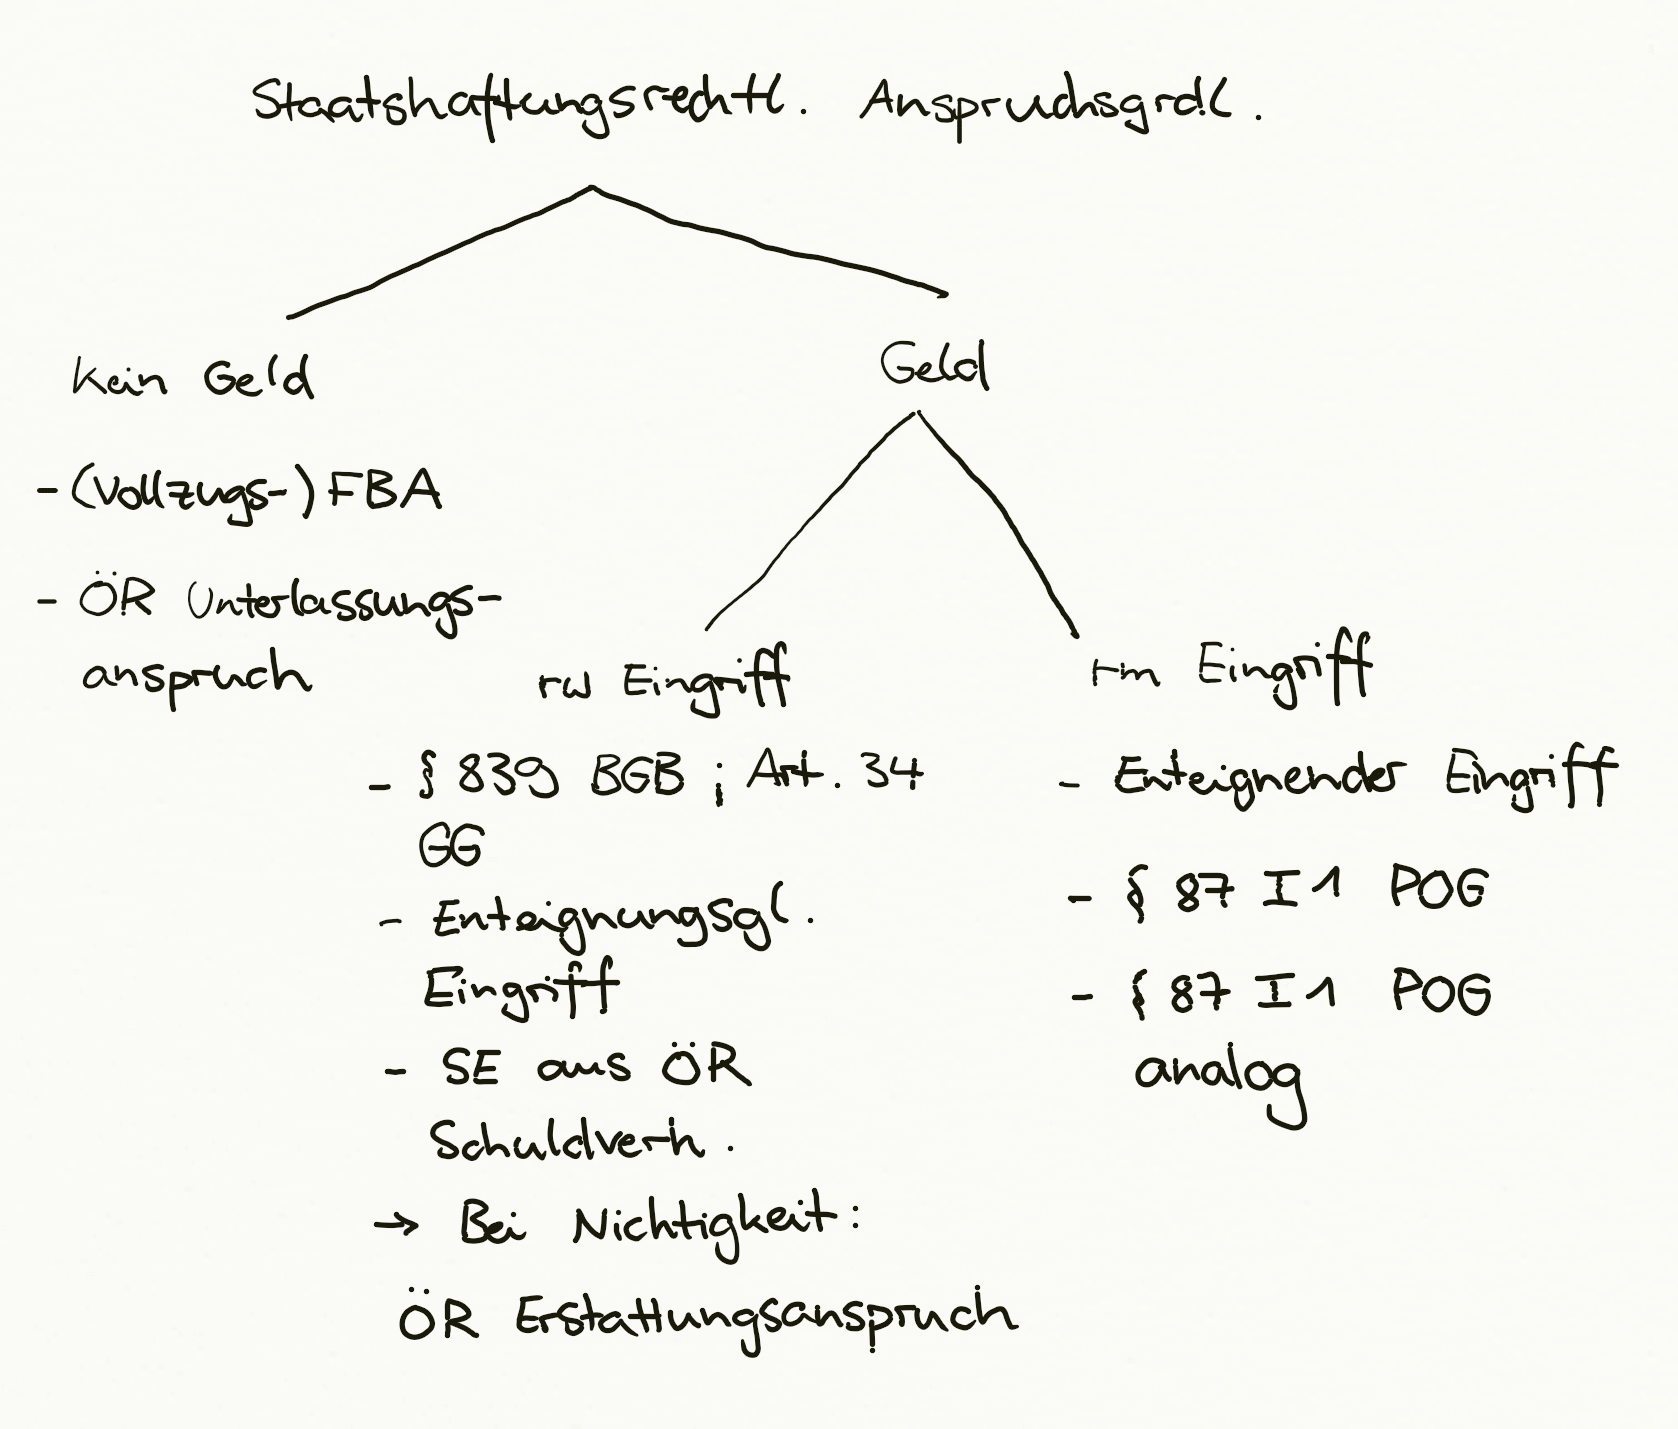 Staatshaftungsrechtl. Anspruchsgrdl.
Kein Geld
- (Vollzugs-) FBA
- ÖR Unterlassungs-
anspruch
Geld
rw Eingriff
- § 839 BGB ; Art. 34
GG
- Enteignungsgl.
Eingriff
- SE aus ÖR
Schuldverh.
→ Bei Nichtigkeit:
ÖR Erstattungsanspruch
rm Eingriff
- Enteignender Eingriff
- § 87 I 1 POG
- § 87 I 1 POG
analog